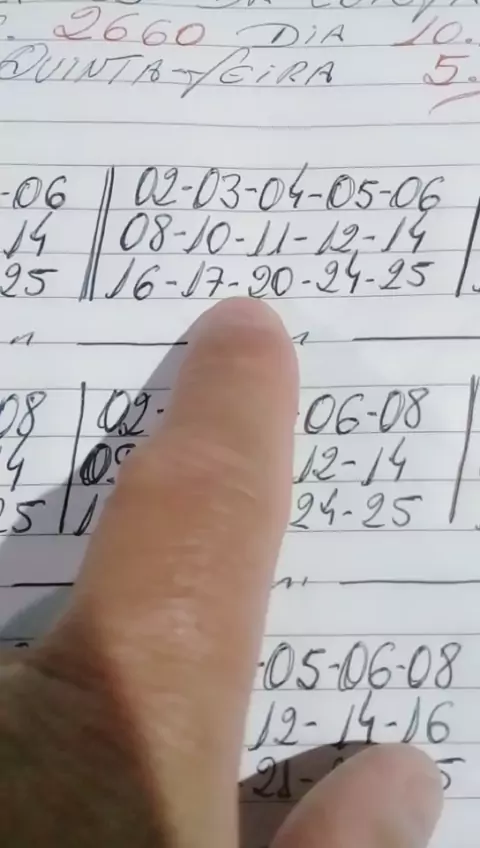 2660 DIA 10.
QUINTA-FEIRA 5.
-06 02-03-04-05-06
14 08-10-11-12-14
25 16-17-20-24-25
08 02- 06-08
4 12-14
5 24-25
-05-06-08
12-14-16
21- 5